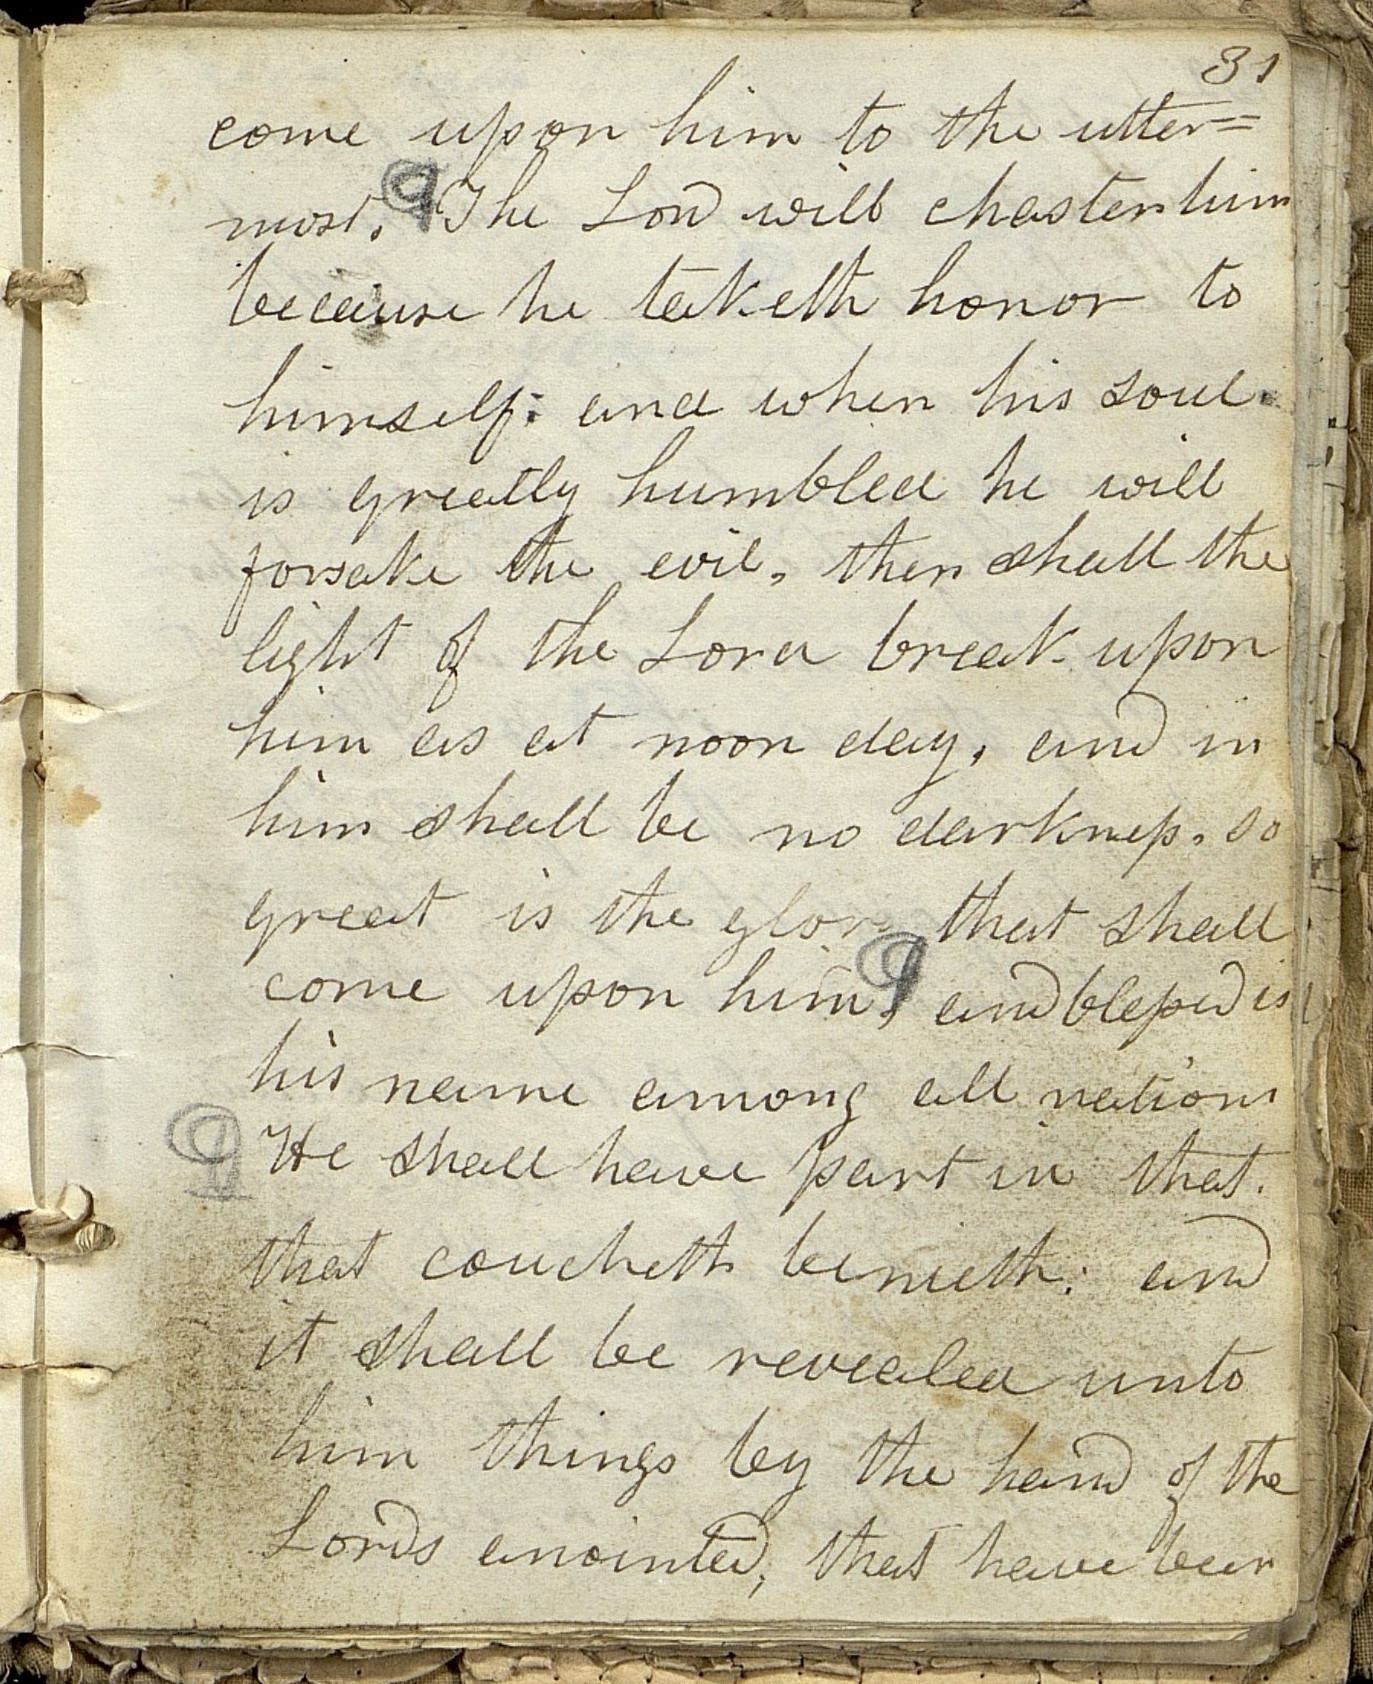 31
come upon him to the utter=
most. ¶ The Lord will chasten him
because he taketh honor to
himself: and when his soul
is greatly humbled he will
forsake the evil, then shall the
light of the Lord break upon
him as at noon day, and in
him shall be no darkness. so
great is the glory that shall
come upon him, ¶ and blessed is
his name among all nations
¶ He shall have part in that.
that coucheth beneath: and
it shall be revealed unto
him things by the hand of the
Lords anointed, that have been